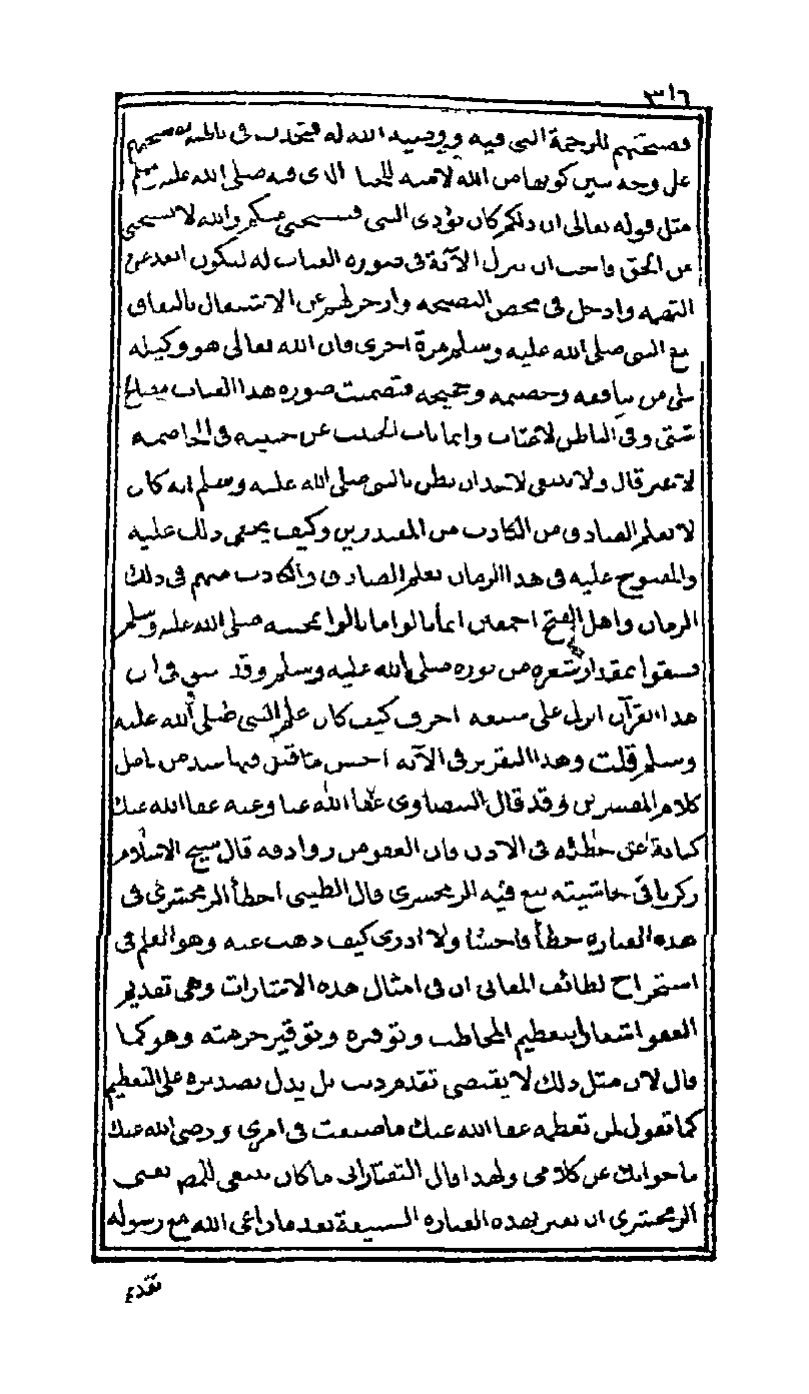 ٣١٦
فضيحتهم للرحمة التى فيه ووصيه الله له فيتحدث فى باطنه
على وجه سين كونها من الله لا منه للحيا الذى فيه صلى الله عليه وسلم
مثل قوله تعالى ان ذلكم كان يؤذى النبى فيستحيى منكم والله لا يستحيى
من الحق فاحب ان ينزل الآية فى صورة العتاب له ليكون ابعد عن
التهمه وادخل فى محض النصيحه وازجر لهم عن الاشتغال بالنفاق
مع النبى صلى الله عليه وسلم مرة اخرى فان الله تعالى هو وكيله
على من نافقه وخصيمه وحجيجه فتضمنت صورة هذا العتاب مصالح
شتى وفى الباطن لا عتاب وانما ناب المحب عن حبيبه فى المخاصمه
لا غير قال ولا ينبغى لاحد ان يظن بالنبى صلى الله عليه وسلم انه كان
لا يعلم الصادق من الكاذب من المعتذرين وكيف يخفى ذلك عليه
والمفتوح عليه فى هذا الزمان يعلم الصادق والكاذب منهم فى ذلك
الزمان واهل الفتح اجمعين انما نالوا ما نالوا بمحبته صلى الله عليه وسلم
فسقوا بمقدار شعرة من نوره صلى الله عليه وسلم وقد سبق فى ان
هذا القرآن انزل على سبعة احرف كيف كان علم النبى صلى الله عليه
وسلم قلت وهذا التقرير فى الآية احسن ما قيل فيها عند من تامل
كلام المفسرين وقد قال البيضاوى عفا الله عنا وعنه عفا الله عنك
كناية عن خطئه فى الاذن فان العفو من روادفه قال شيخ الاسلام
زكريا فى حاشيته تبع فيه الزمخشرى قال الطيبى اخطأ الزمخشرى فى
هذه العبارة خطأ فاحشا ولا ادرى كيف ذهب عنه وهو العلم فى
استخراج لطائف المعانى ان فى امثال هذه الاشارات وهى تقديم
العفو اشعارا بتعظيم المخاطب وتوقيره وتوقير حرمته وهو كما
قال لان مثل ذلك لا يقتضى تقدم ذنب بل يدل تصديره على التعظيم
كما تقول لمن تعظمه عفا الله عنك ما صنعت فى امرى ورضى الله عنك
ما جوابك عن كلامى ولهذا قال التفتازانى ما كان ينبغى للمص يعنى
الزمخشرى ان يعبر بهذه العبارة الشنيعة بعد ما راعى الله مع رسوله
تقدم